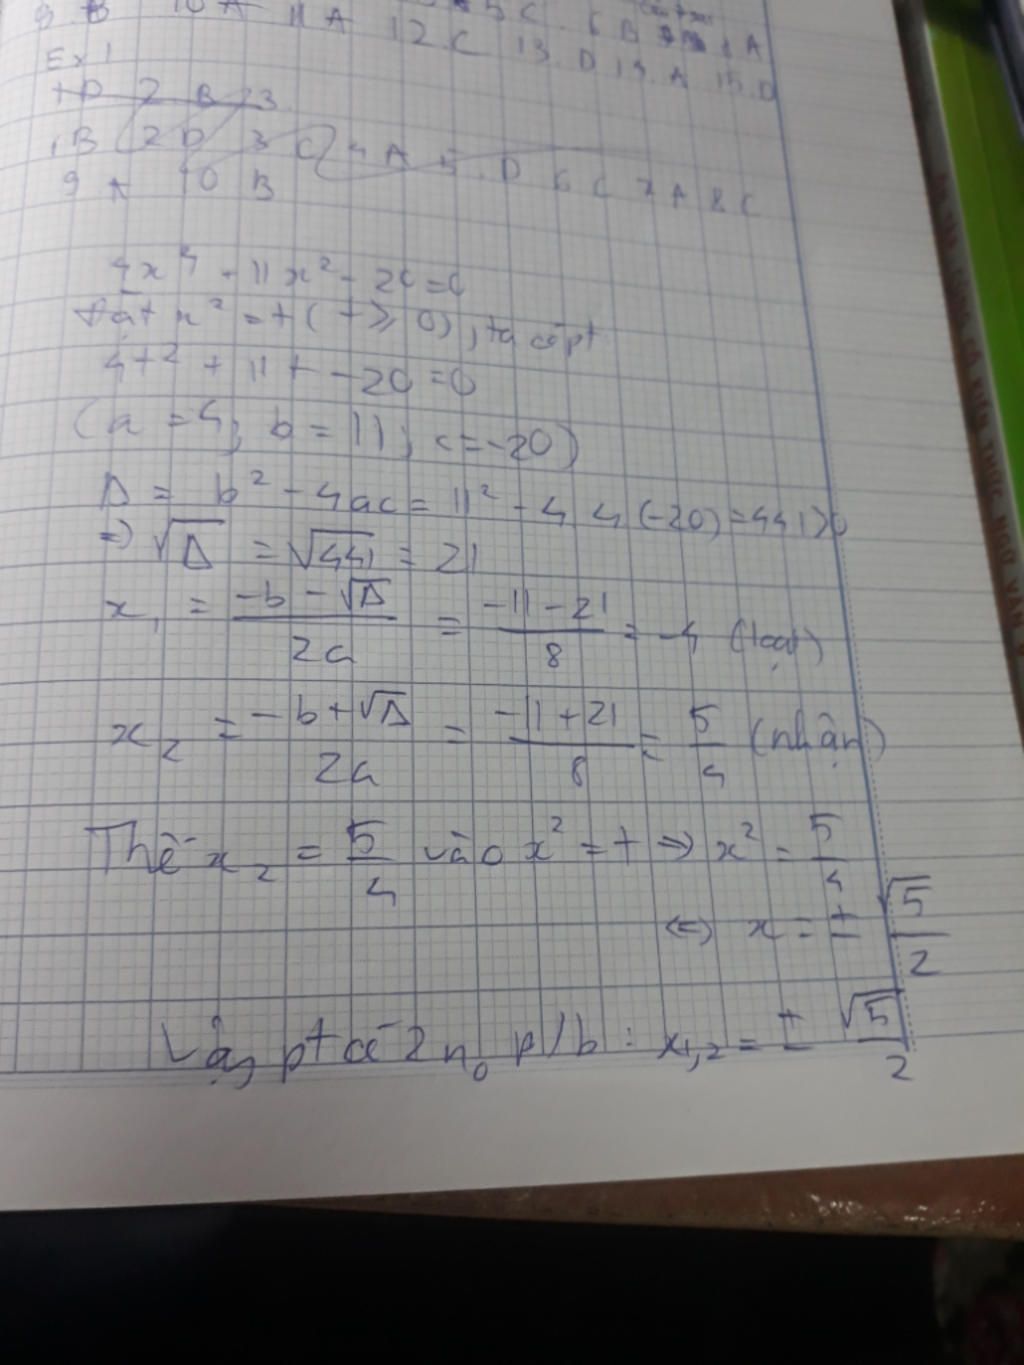 9 B 10 A 11 A 12.C 13. D 14. A 15. D
5 C. 6 B 8 A
Ex 1
1D 2 B 3
1B 2D 3 C 4 A 5 D 6 C 7 A 8 C
9 A 10 B
4x⁴ + 11x² - 20 = 0
Đặt x² = t ( t ≥ 0), ta có pt
4t² + 11t - 20 = 0
(a = 4; b = 11; c = -20)
Δ = b² - 4ac = 11² - 4 4 (-20) = 441 > 0
=> √Δ = √441 = 21
x₁ = (-b - √Δ)/2a = (-11 - 21)/8 = -4 (loại)
x₂ = (-b + √Δ)/2a = (-11 + 21)/8 = 5/4 (nhận)
Thế x₂ = 5/4 vào x² = t => x² = 5/4
<=> x = ± √5/2
Vậy pt có 2 n₀ p/b : x₁,₂ = ± √5/2
CÓ KIẾN THỨC NGỮ VĂN 9